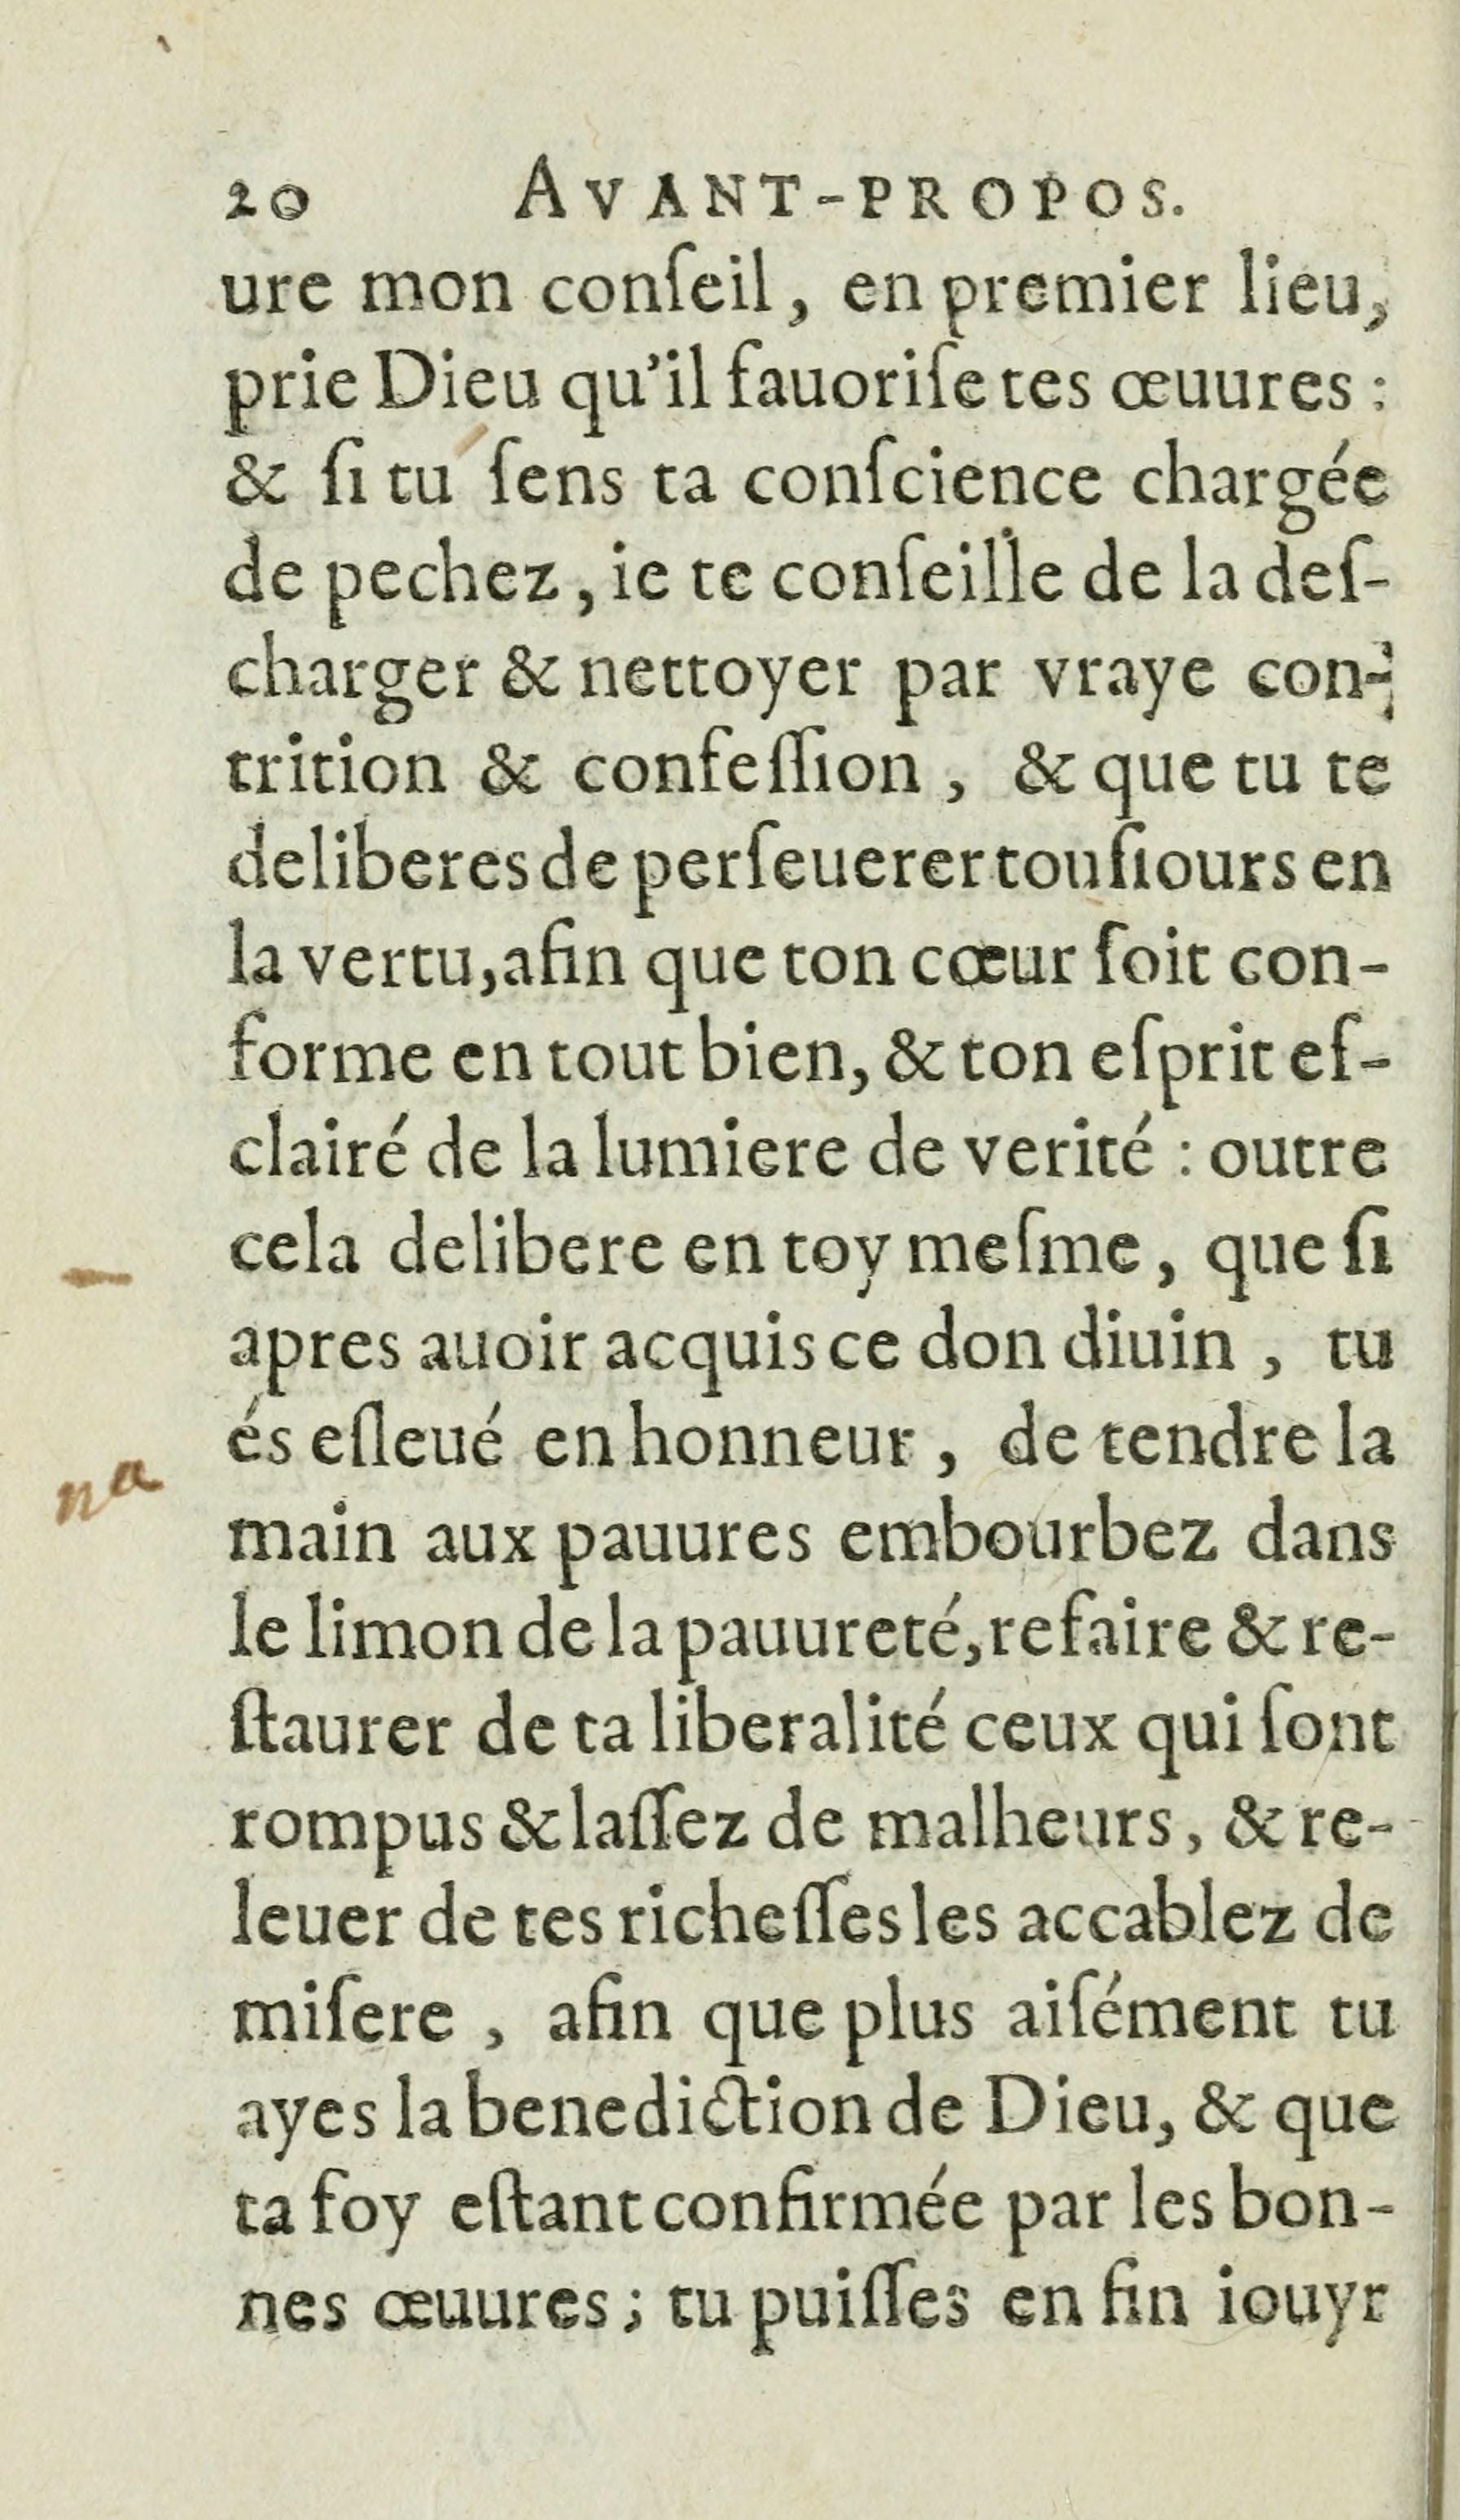 20 AVANT-PROPOS.
ure mon conſeil, en premier lieu,
prie Dieu qu'il fauoriſe tes œuures :
& ſi tu ſens ta conſcience chargée
de pechez, ie te conſeille de la deſ-
charger & nettoyer par vraye con-
trition & confeſſion, & que tu te
deliberes de perſeuerer touſiours en
la vertu, afin que ton cœur ſoit con-
forme en tout bien, & ton eſprit eſ-
clairé de la lumiere de verité : outre
cela delibere en toy meſme, que ſi
apres auoir acquis ce don diuin, tu
és eſleué en honneur, de tendre la
na
main aux pauures embourbez dans
le limon de la pauureté, refaire & re-
ſtaurer de ta liberalité ceux qui ſont
rompus & laſſez de malheurs, & re-
leuer de tes richeſſes les accablez de
miſere, afin que plus aiſément tu
ayes la benediction de Dieu, & que
ta foy eſtant confirmée par les bon-
nes œuures; tu puiſſes en fin iouyr